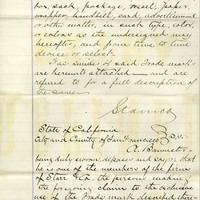 box, sack, package, vessel, paper,
wrapper, handbill, card, advertisement
or other matter, in such size, color,
or colors as the undersigned may
hereafter, and from time to time
devise or select.
Fac similes of said Trade mark
are hereunto attached — and are
referred to for a full description of
the same.
Starr & Co
State of California
City and County of San Francisco } S.S.
A. Bannister
being duly sworn deposes and says: that
he is one of the members of the firm
of Starr & Co. the persons making
the foregoing claim to the exclusive
use of the Trade mark described there-